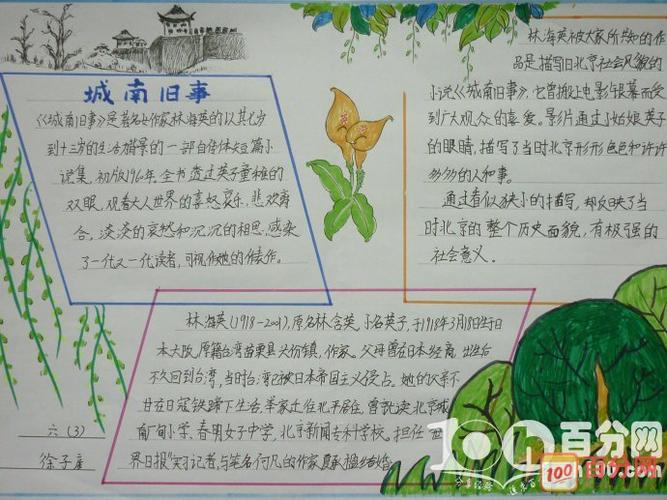 城南旧事
《城南旧事》是著名女作家林海英的以其七岁
到十三岁的生活背景的一部自传体短篇小
说集，初版196年。全书透过英子童稚的
双眼，观看大人世界的喜怒哀乐，悲欢离
合，淡淡的哀愁和沉沉的相思，感染
了一代又一代读者，可视做她的代表作。
林海英被大家所熟知的作
品是描写旧北京社会风貌的
小说《城南旧事》，它曾搬上电影银幕而受
到广大观众的喜爱。影片通过小姑娘英子
的眼睛，描写了当时北京形形色色和许许
多多的人和事。
通过看似狭小的描写，却反映了当
时北京的整个历史面貌，有极强的
社会意义。
林海英(1918-2001)，原名林含英，小名英子，于1918年3月18日生于日
本大阪，原籍台湾苗栗县头份镇，作家。父母曾在日本经商，出生后
不久回到台湾，当时台湾已被日本帝国主义侵占，她的父亲不
甘在日寇铁蹄下生活，举家迁往北平居住，曾就读北京城
南厂甸小学、春明女子中学、北京新闻专科学校。担任
界日报"实习记者，与笔名何凡的作家夏承楹结婚
六(3)
徐子彦
100百分网
100百分网